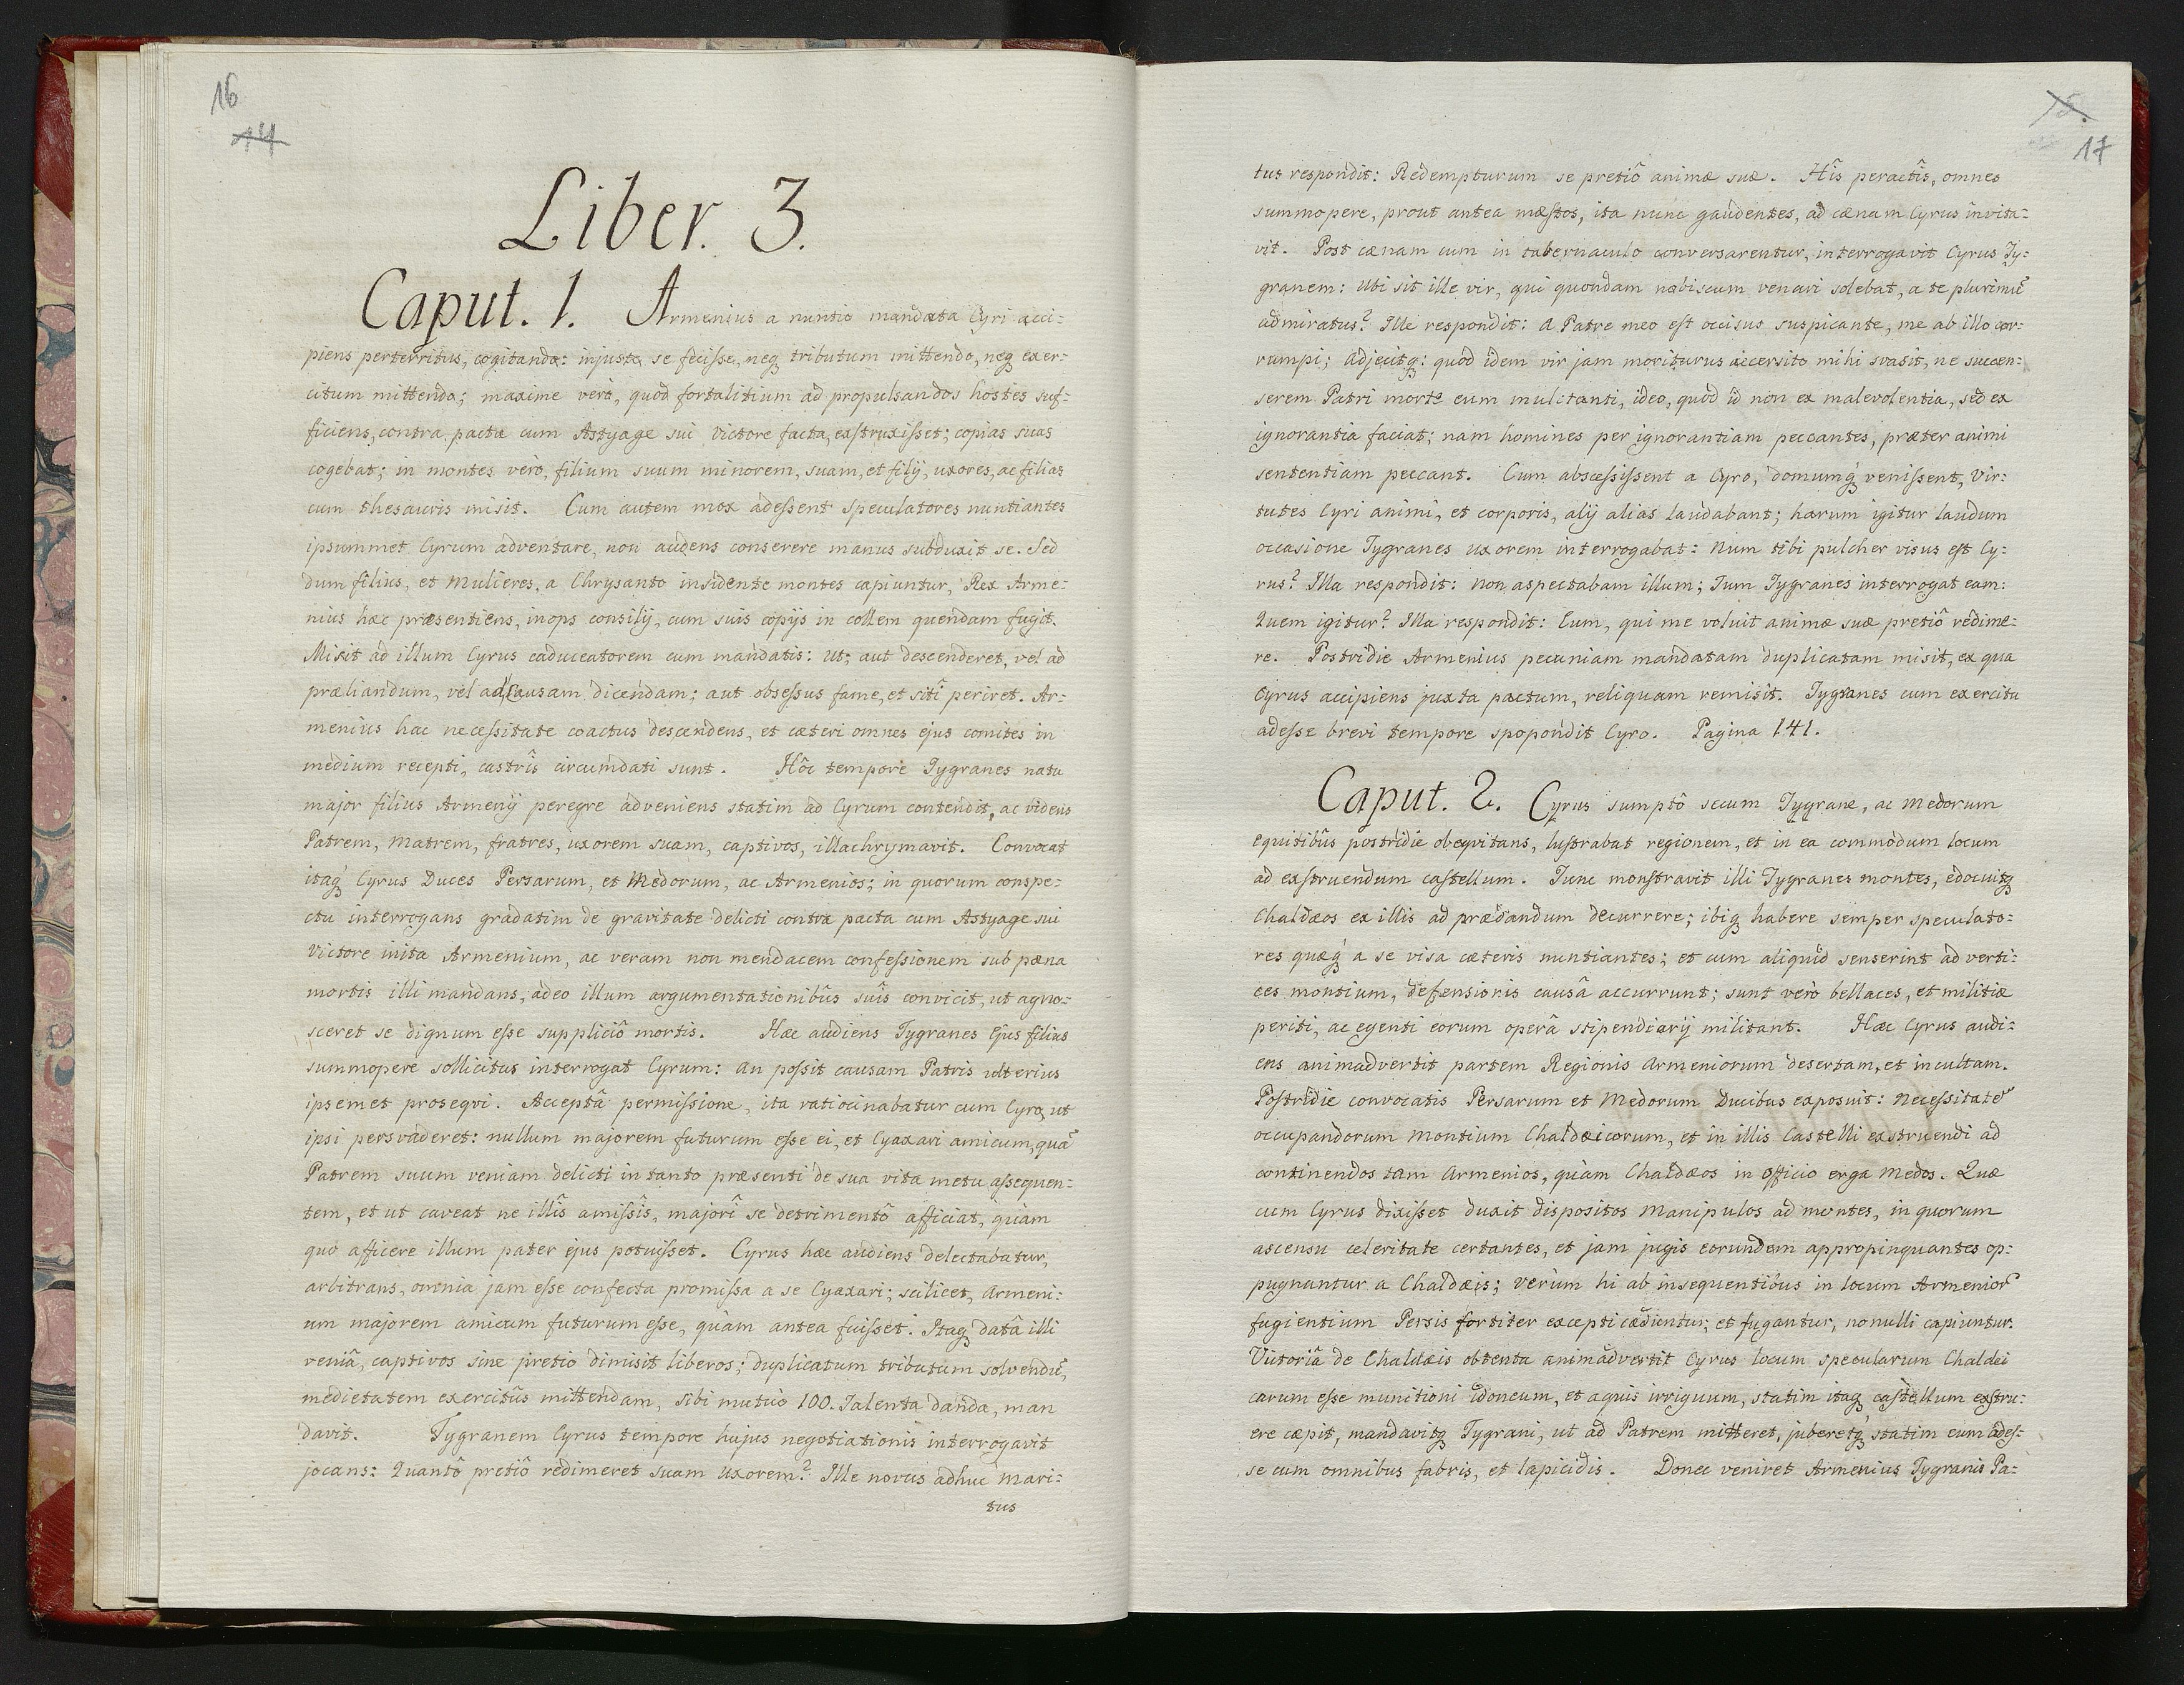 16
14
Liber. 3.
Caput. 1. Armenius a nuntio mandata Cyri acci:
piens perterritus, cogitando: injuste se fecisse, neq tributum mittendo, neq exer:
citum mittendo; maxime verò, quòd fortalitium ad propulsandos hostes suf:
ficiens, contra pacta cum Astyage sui Victore facta, exstruxisset; copias suas
cogebat; in montes verò, filium suum minorem, suam, et filij, uxores, ac filias
cum thesauris misit. Cum autem mox adessent speculatores nuntiantes
ipsummet Cyrum adventare, non audens conserere manus subduxit se. Sed
dum filius, et Mulieres, a Chrysanto insidente montes capiuntur, Rex Arme:
nius hæc præsentiens, inops consilij, cum suis copijs in collem quendam fugit.
Misit ad illum Cyrus caduceatorem cum mandatis: Ut; aut descenderet, vel ad
præliandum, vel ad Causam dicendam; aut obsessus fame, et sitî periret. Ar:
menius hac necessitate coactus descendens, et cæteri omnes ejus comites in
medium recepti, castrîs circumdati sunt. Hôc tempore Tygranes natu
major filius Armenij peregre adveniens statim ad Cyrum contendit, ac videns
Patrem, Matrem, fratres, uxorem suam, captivos, illachrymavit. Convocat
itaq Cyrus Duces Persarum, et Medorum, ac Armenios; in quorum conspe:
ctu interrogans gradatim de gravitate delicti contra pacta cum Astyage sui
Victore inita Armenium, ac veram non mendacem confessionem sub pæna
mortis illi mandans, adeo illum argumentationibûs suîs convicit, ut agno:
sceret se dignum esse suppliciô mortis. Hæc audiens Tygranes Ejus filius
summopere sollicitus interrogat Cyrum: an possit causam Patris ulterius
ipsemet proseqvi. Acceptâ permissione, ita ratiocinabatur cum Cyro, ut
ipsi persvaderet: nullum majorem futurum esse ei, et Cyaxari amicum, quā
Patrem suum veniam delicti in tanto præsenti de sua vita metu assequen:
tem, et ut caveat ne illîs amissîs, majorî se detrimentô afficiat, quàm
quo afficere illum pater ejus potuisset. Cyrus hæc audiens delectabatur,
arbitrans, omnia jam esse confecta promissa a se Cyaxari; scilicet, Armeni:
um majorem amicum futurum esse, quàm antea fuisset. Itaq datâ illi
veniâ, captivos sine pretio dimisit liberos; duplicatum tributum solvendū,
medietatem exercitûs mittendam, sibi mutuò 100. Talenta danda, man
davit. Tygranem Cyrus tempore hujus negotiationis interrogavit
jocans: Quantô pretiô redimeret suam Uxorem? Ille novus adhuc mari:
tus
15.
17
tus respondit: Redempturum se pretiô animæ suæ. Hîs peractîs, omnes
summopere, prout antea mæstos, ita nunc gaudentes, ad cænam Cyrus invita:
vit. Post cænam cum in tabernaculo conversarentur, interrogavit Cyrus Ty:
granem: Ubi sit ille vir, qui quondam nobiscum venari solebat, a te plurimū
admiratus? Ille respondit: A Patre meo est occisus suspicante, me ab illo cor:
rumpi; Adjecitq: quòd idem vir jam moriturus accersito mihi svasit, ne succen:
serem Patri morte eum mulctanti, ideo, quòd id non ex malevolentia, sed ex
ignorantia faciat; nam homines per ignorantiam peccantes, præter animi
sententiam peccant. Cum abscessissent a Cyro, domumq venissent, Vir:
tutes Cyri animi, et corporis, alij alias laudabant; harum igitur laudum
occasione Tygranes uxorem interrogabat: Num tibi pulcher visus est Cy:
rus? Illa respondit: Non aspectabam illum; Tum Tygranes interrogat eam:
Quem igitur? Illa respondit: Eum, qui me voluit animæ suæ pretiô redime:
re. Postridie Armenius pecuniam mandatam duplicatam misit, ex qua
Cyrus accipiens juxta pactum, reliquam remisit. Tygranes cum exercitu
adesse brevi tempore spopondit Cyro. Pagina 141.
Caput. 2. Cyrus sumptô secum Tygrane, ac Medorum
equitibûs postridie obeqvitans, lustrabat regionem, et in ea commodum locum
ad exstruendum castellum. Tunc monstravit illi Tygranes montes, edocuitq
Chaldæos ex illis ad prædandum decurrere; ibiq habere semper speculato:
res quæq a se visa cæteris nuntiantes; et cum aliquid senserint ad verti:
ces montium, defensionis causâ accurrunt; sunt verò bellaces, et militiæ
periti, ac egenti eorum operâ stipendiarij militant. Hæc Cyrus audi:
ens animadvertit partem Regionis Armeniorum desertam, et incultam.
Postridie convocatis Persarum et Medorum Ducibus exposuit: Necessitatē
occupandorum Montium Chaldæicorum, et in illis Castelli exstruendi ad
continendos tam Armenios, quàm Chaldæos in Officio erga Medos. Quæ
cum Cyrus dixisset duxit dispositos Manipulos ad montes, in quorum
ascensu celeritate certantes, et jam jugis eorundem appropinquantes op:
pugnantur a Chaldæis; verùm hi ab insequentibus in locum Armenior
fugientium Persis fortiter excepti cæduntur, et fugantur, nonulli capiuntur.
Victoriâ de Chaldæis obtenta animadvertit Cyrus locum specularum Chaldei
carum esse munitioni idoneum, et aquis irriguum, statim itaq castellum exstru:
ere cæpit, mandavitq Tygrani, ut ad Patrem mitteret, juberetq statim eum ades:
se cum omnibus fabris, et lapicidis. Donec veniret Armenius Tygranis Pa: